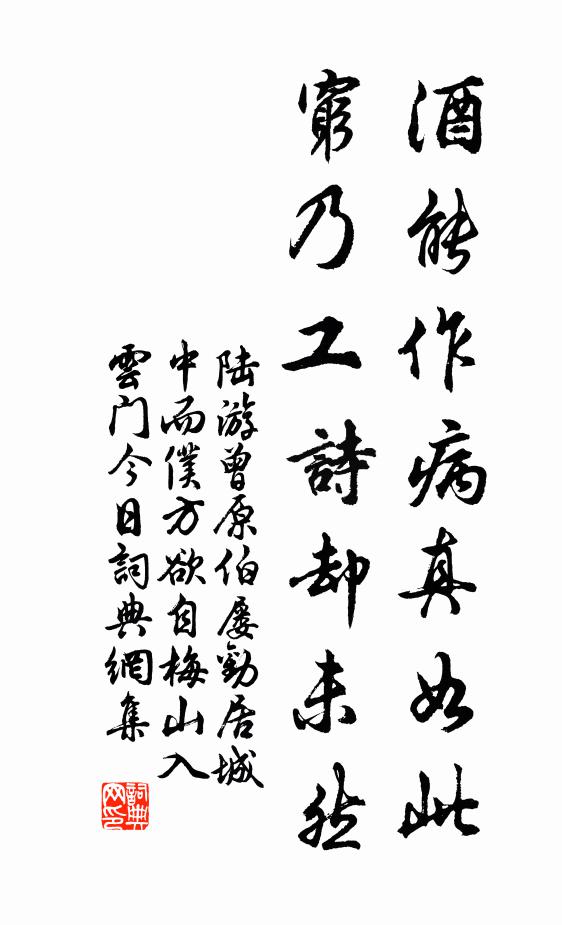 酒能作病真如此
窮乃工詩却未然
陆游曾原伯屡勸居城
中而僕方欲自梅山入
雲门今日詞典網集
詞典网印